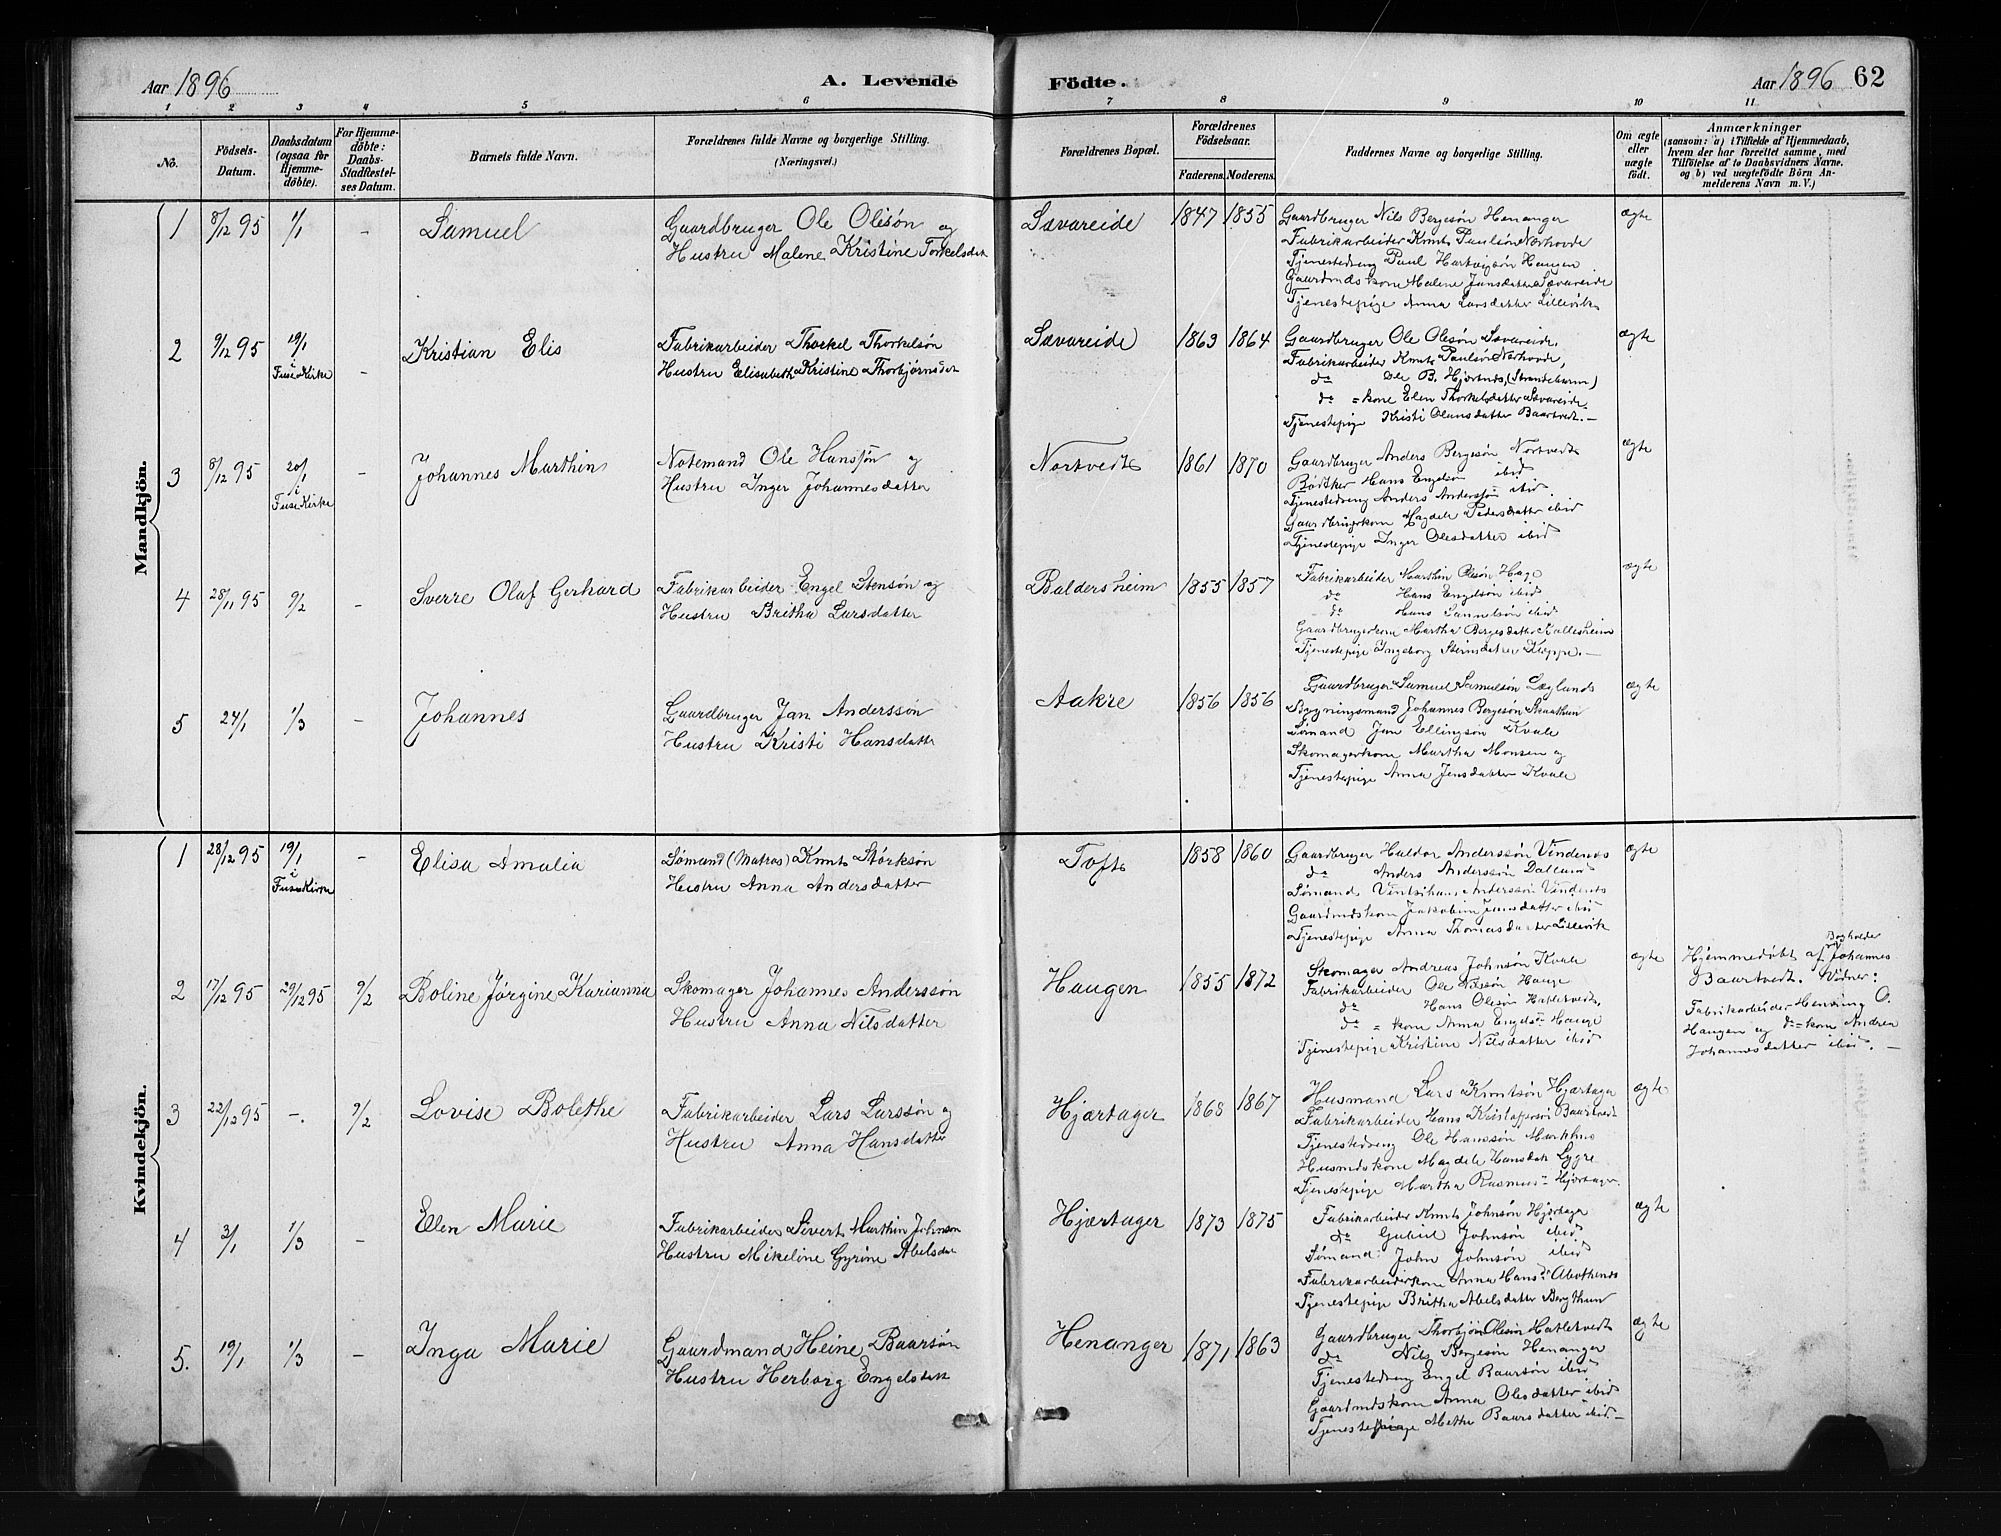 Aar 1896
A. Levende
Födte.
Aar 1896 62
1 2 3 4 5 6 7 8 9 10 11
No.
Födsels-Datum.
Daabsdatum (ogsaa for Hjemme-døbte).
For Hjemme-døbte: Daabs-Stadfæstel-ses Datum.
Barnets fulde Navn.
Forældrenes fulde Navne og borgerlige Stilling.
(Næringsvei.)
Forældrenes Bopæl.
Forældrenes Födselsaar.
Faderens. Moderens.
Faddernes Navne og borgerlige Stilling.
Om ægte eller uægte födt.
Anmærkninger
(saasom: a) i Tilfælde af Hjemmedaab,
hvem der har forrettet samme, med
Tilföielse af to Daabsvidners Navne.
og b) ved uægtefödte Börn An-
melderens Navn m. V.)
Mandkjön.
1 8/12 95 1/1 - Samuel
Gaardbruger Ole Olesøn og
Hustru Malene Kristine Torkelsdat
Sævareide 1847 1855
Gaardbruger Nils Bergesøn Henanger
Fabrikarbeider Knut Paulsøn Nørhovde
Tjenestedreng Paul Hartvigsøn Haugen
Gaardmdskone Malene Jansdatter Sævareide
Tjenestepige Anna Larsdatter Lillevik
ægte
2 9/12 95 19/1 i Fuse Kirke - Kristian Elis
Fabrikarbeider Thorkel Thorkelsøn
Hustru Elisabeth Kristine Thorbjørnsdat
Sævareide 1863 1864
Gaardbruger Ole Olesøn Sævareide,
Fabrikarbeider Knut Paulsøn Nørhovde,
do Ole B. Hjertnes, (Strandebarm)
do = kone Elen Thorkelsdatter Sævareide
Tjenestepige Kristi Olansdatter Baartvedt. -
ægte
3 8/12 95 20/1 i Fuse Kirke - Johannes Marthin
Notemand Ole Hanssøn og
Hustru Inger Johannesdatter
Nortvedt 1861 1870
Gaardbruger Anders Bergesøn Nortvedt
Bødtker Hans Engelsøn ibid
Tjenestedreng Anders Anderssøn ibid.
Gaardbrugerkone Magdele Pedersdatter ibid
Tjenestepige Inger Olesdatter ibid
ægte
4 28/11 95 9/2 - Sverre Olaf Gerhard
Fabrikarbeider Engel Stensøn og
Hustru Britha Larsdatter
Baldersheim 1855 1857
Fabrikarbeider Marthin Olesøn Hage
do Hans Engelsøn ibid
do Hans Samuelsøn ibid
Gaardbrugerkone Martha Bergesdatter
Tjenestepige Ingeborg Steinsdatter Kleppe. -
ægte
5 24/1 1/3 - Johannes
Gaardbruger Jan Anderssøn
Hustru Kristi Hansdatter
Aakre 1856 1856
Gaardbruger Samuel Samuelsøn Læglands
Bygningsmand Johannes Bergesøn Skaathun
Sømand Jan Ellingsøn Kvale
Skomagerkone Martha Monsen og
Tjenestepige Anna Jensdatter Kvale
ægte
Kvindekjön.
1 28/12 95 19/1 i Fuse Kirke - Elisa Amalia
Sømand (Matros) Knut Størksøn
Hustru Anna Andersdatter
Toft 1858 1860
Gaardbruger Haldor Anderssøn Vindenes
do Anders Anderssøn Dalland
Sømand Anderssøn Vindenes
Gaardmdskone Jakobine Jensdatter ibid
Tjenestepige Anna Thomasdatter Lillevik
ægte
2 17/12 95 29/12 95 9/2 Boline Jørgine Karianna
Skomager Johannes Anderssøn
Hustru Anna Nilsdatter
Haugen 1855 1872
Skomager Andreas Johnsøn Kvale
Fabrikarbeider Ole Nilsøn Hauge
do Hans Olesøn Hatletvedt,
do = kone Anna Engelsd. Hauge
Tjenestepige Kristine Nilsdatter ibid
ægte
Hjemmedøbt af Bogholder Johannes
Baartvedt. Vidner:
Fabrikarbeider Henning O.
Haugen og do = kone Andrea
Johannesdatter ibid. -
3 22/12 95 - 9/2 Lovise Bolethe
Fabrikarbeider Lars Larssøn og
Hustru Anna Hansdatter
Hjærtager 1868 1867
Husmand Lars Knutsøn Hjærtager
Fabrikarbeider Hans Kristoffersøn Baartvedt
Tjenestedreng Ole Hanssøn Markhus
Husmdskone Magdele Hansdat Lygre
Tjenestepige Martha Rasmusd. Hjørtager
ægte
4 3/1 1/3 - Ellen Marie
Fabrikarbeider Sivert Marthin Johnsøn
Hustru Mikeline Gyrine Abelsdat
Hjærtager 1873 1875
Fabrikarbeider Knut Johnsøn Hjørtager
do Gabriel Johnsøn ibid
Sømand John Johnsøn ibid
Fabrikarbeiderkone Anna Hansd.
Tjenestepige Britha Abelsdatter Bergthun
ægte
5. 19/1 1/3 - Inga Marie
Gaardmand Heine Baarsøn
Hustru Herborg Engelsdatt
Henanger 1871 1863
Gaardbruger Thorbjørn Olesøn Hatletvedt
do Nils Bergesøn Henanger
Tjenestedreng Engel Baarsøn ibid
Gaardmdskone Anna Olesdatter ibid
Tjenestepige Mette Baarsdatter ibid. -
ægte